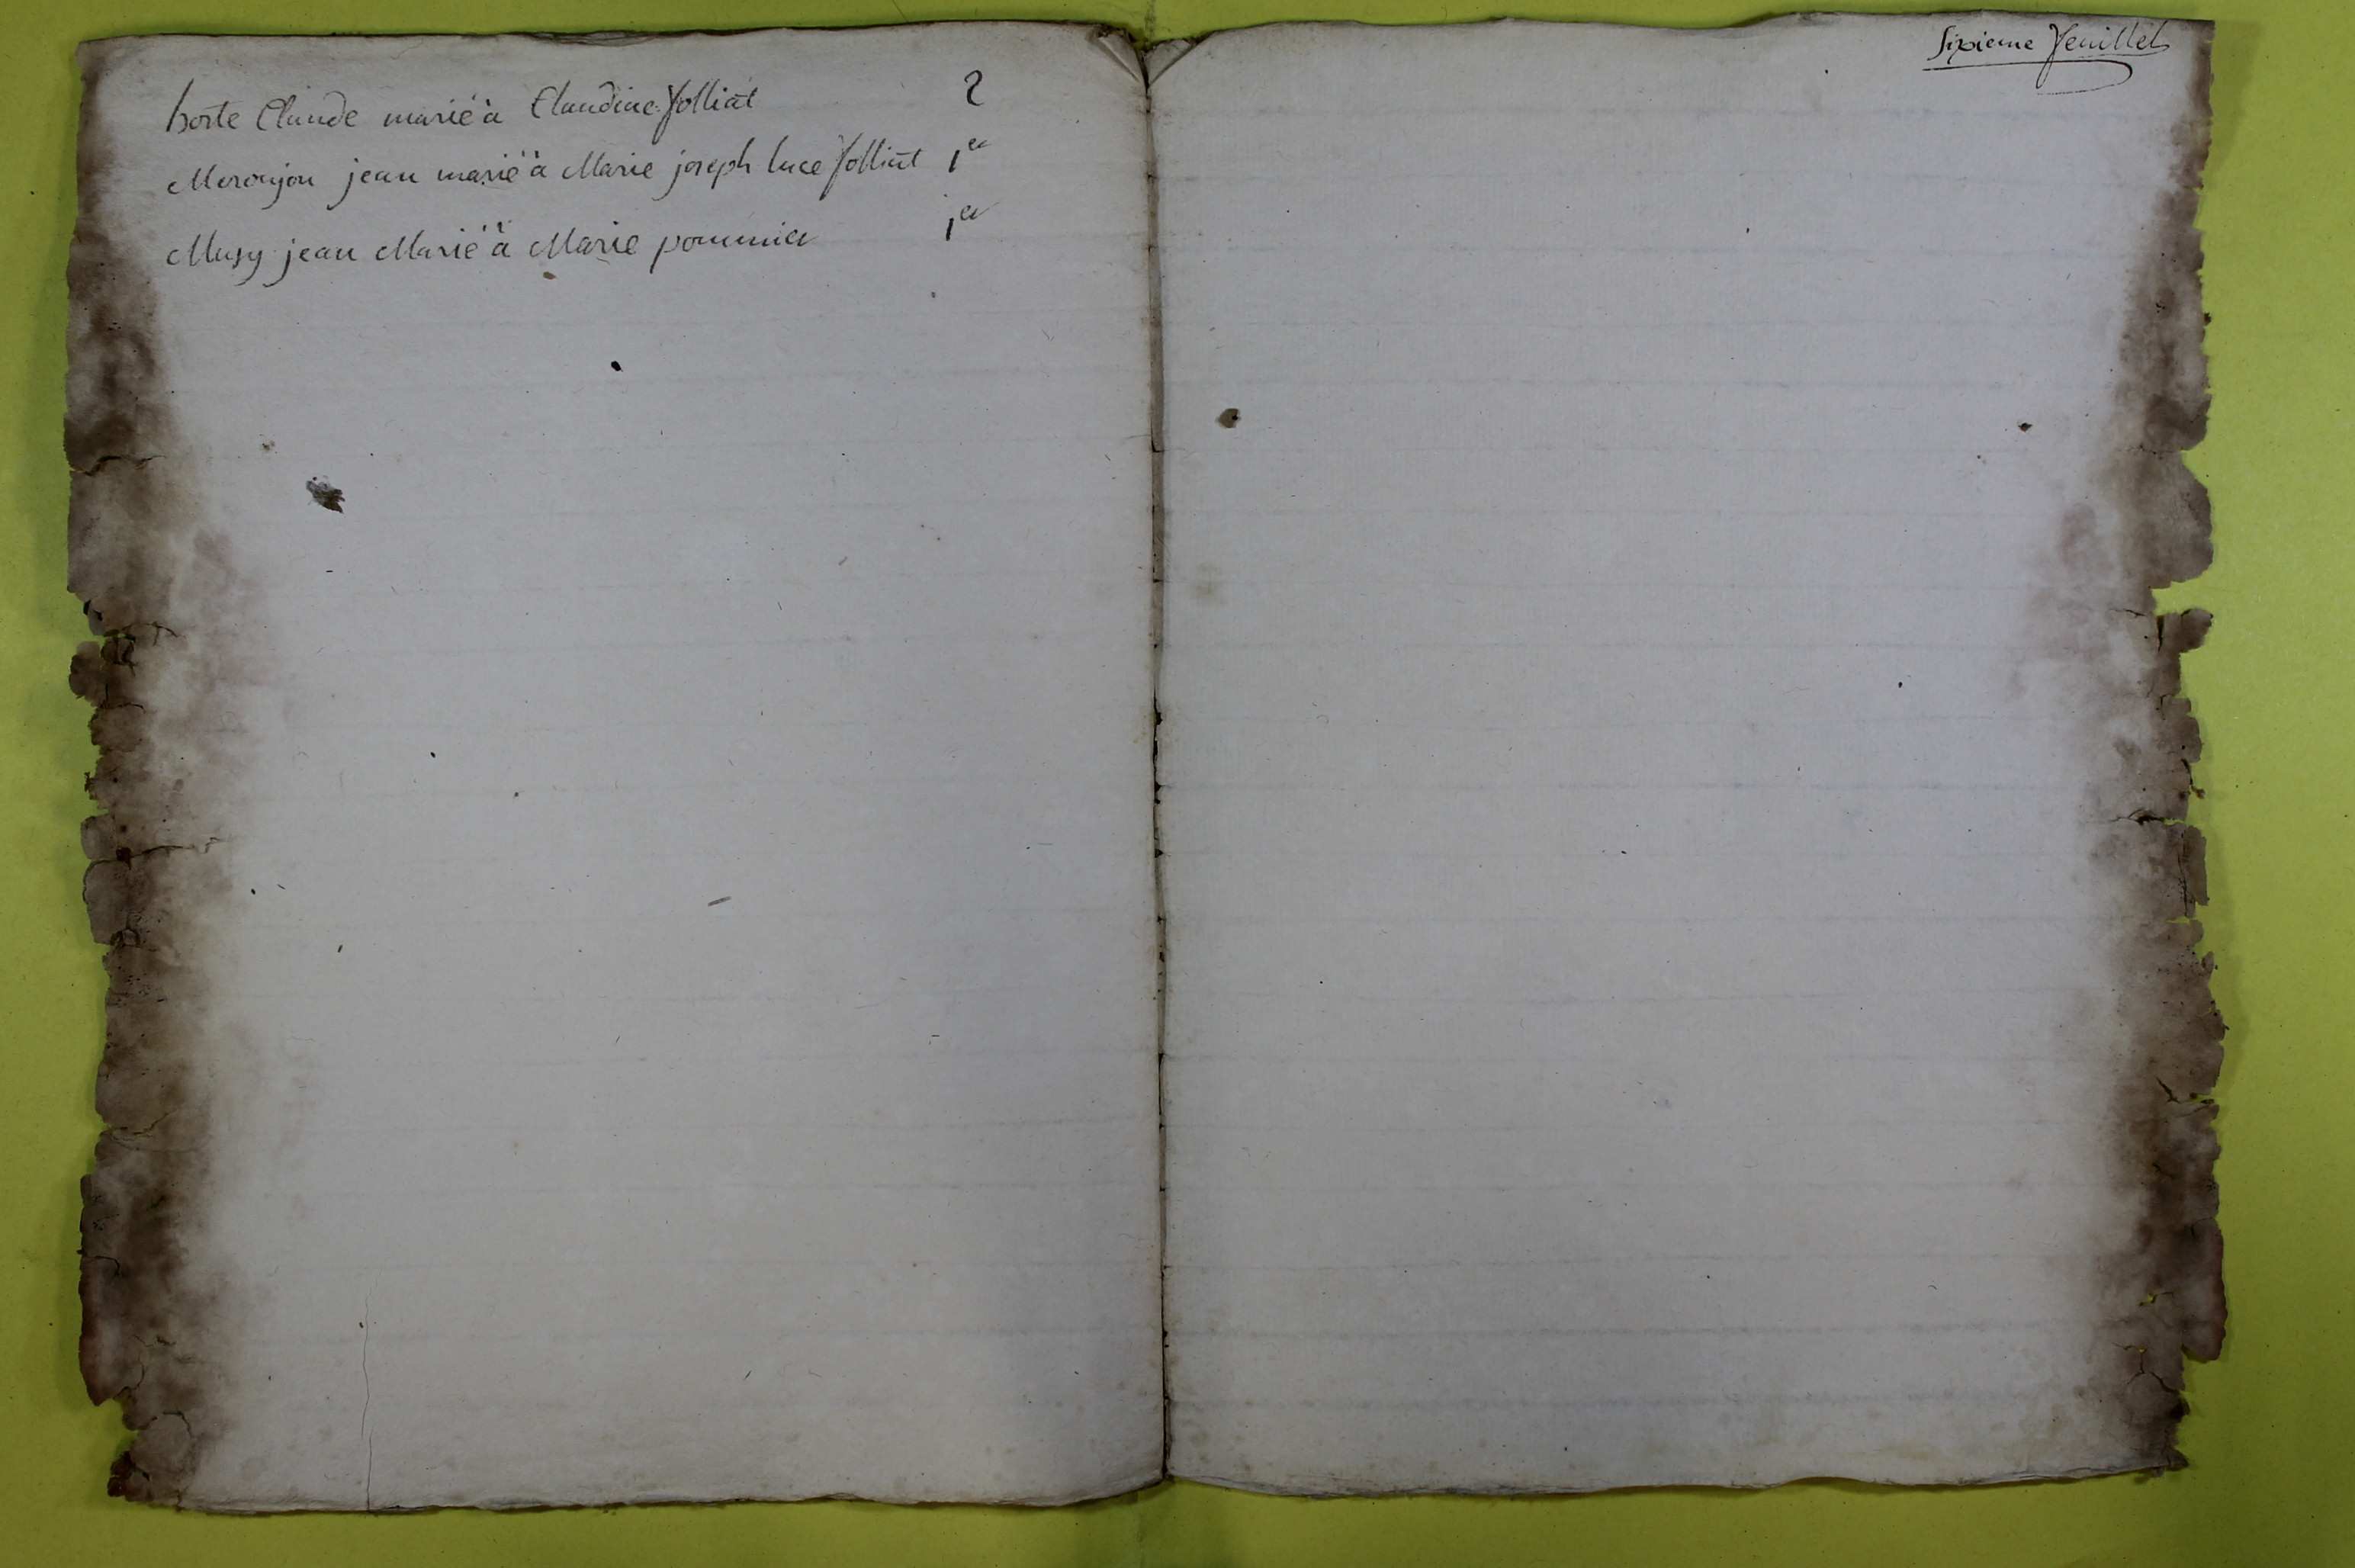 horte Claude marié à Claudine folliat 2
Meronjon jean marié à Marie joseph luce folliat 1er
Musy jean Marié à Marie pommier 1er
Sixieme feuillet